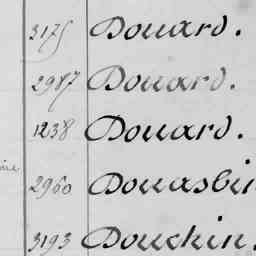 3175 Douard.
2987 Douard.
1238 Douard.
2960 Douasbin
3193 Douchin.